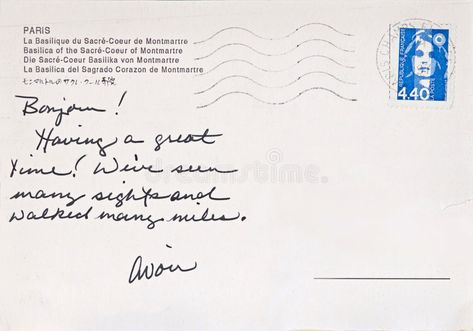 PARIS
La Basilique du Sacré-Coeur de Montmartre
Basilica of the Sacré-Coeur of Montmartre
Die Sacré-Coeur Basilika von Montmartre
La Basilica del Sagrado Corazon de Montmartre
モンマルトルのサクレ・クール寺院
RÉPUBLIQUE FRANÇAISE
4,40
Bonjour!
Having a great
time! We've seen
many sights and
walked many miles.
Avoir
dreamstime